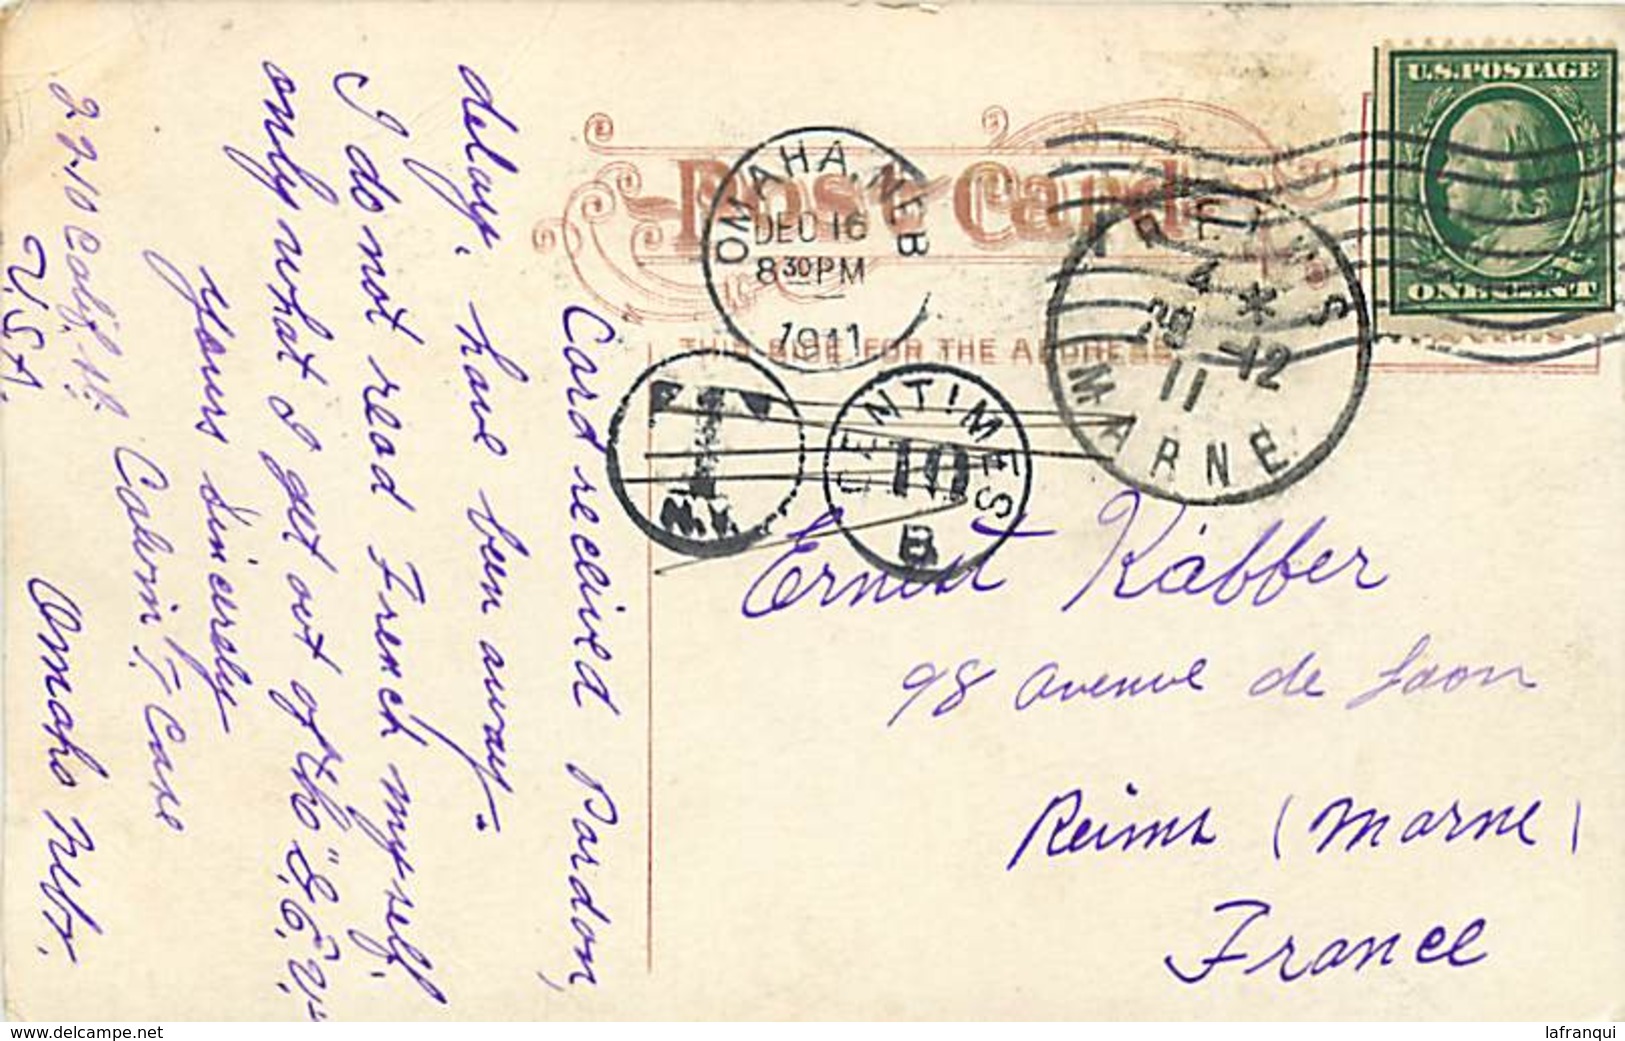 U.S.POSTAGE
ONE CENT
Post Card
THIS SIDE FOR THE ADDRESS
OMAHA, NEB
DEC 16
8 30 PM
1911
REIMS
4 *
28 -12
11
MARNE
T
N.Y.
CENTIMES
10
B
Card received Pardon,
delay, have been away.
I do not read French myself.
only what I get out of the "S.E.V."
Yours Sincerely
Calvin T. Case
2210 Calif. St. Omaha Nebr.
U.S.A.
Ernest Kaffer
98 avenue de Laon
Reims (Marne)
France
www.delcampe.net
lafranqui